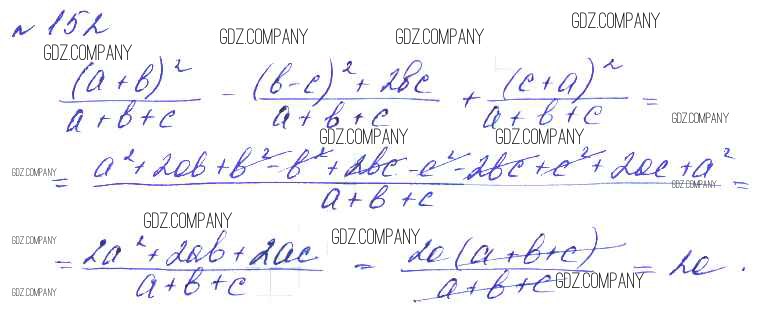 № 152
GDZ.COMPANY GDZ.COMPANY GDZ.COMPANY GDZ.COMPANY
(a+b)²/(a+b+c) - ((b-c)²+2bc)/(a+b+c) + (c+a)²/(a+b+c) =
GDZ.COMPANY GDZ.COMPANY GDZ.COMPANY
= (a²+2ab+b²-b²+2bc-c²-2bc+c²+2ac+a²)/(a+b+c) =
GDZ.COMPANY GDZ.COMPANY
GDZ.COMPANY GDZ.COMPANY GDZ.COMPANY
= (2a²+2ab+2ac)/(a+b+c) = 2a(a+b+c)/(a+b+c) = 2a.
GDZ.COMPANY GDZ.COMPANY